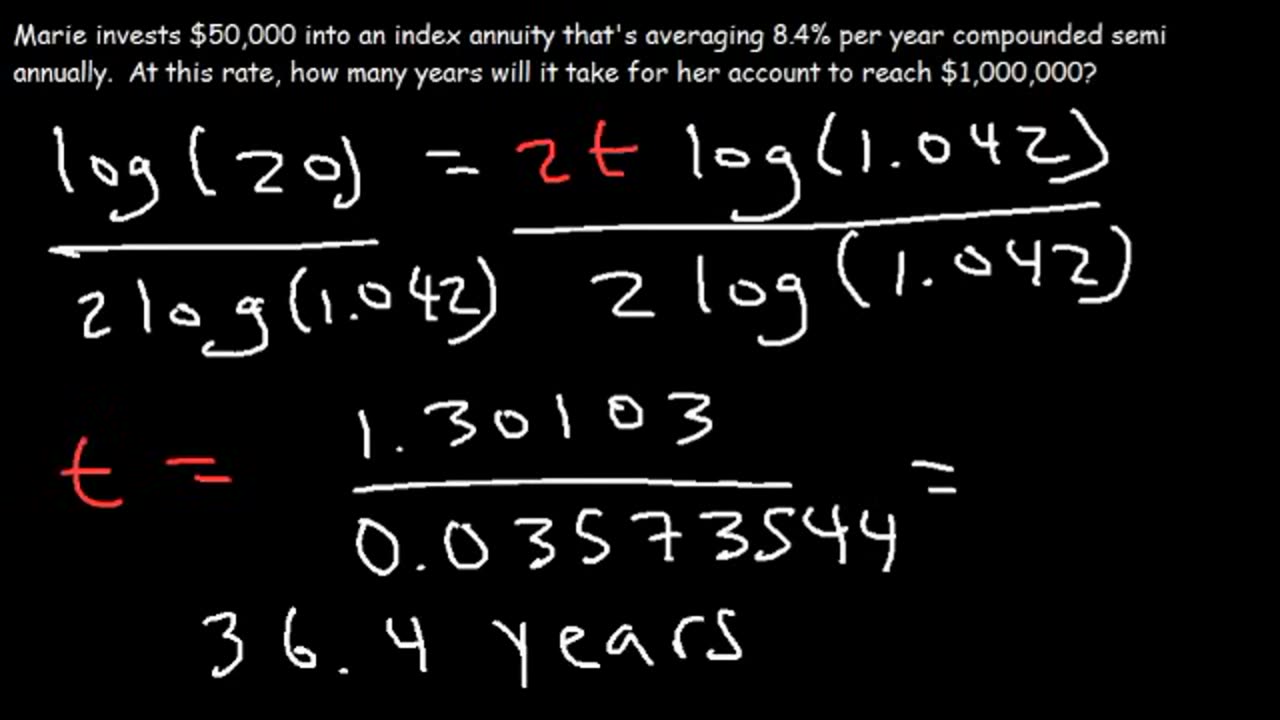 Marie invests $50,000 into an index annuity that's averaging 8.4% per year compounded semi
annually. At this rate, how many years will it take for her account to reach $1,000,000?
log(20) = 2t log(1.042)
2log(1.042) 2 log(1.042)
1.30103
t = =
0.03573544
36.4 years